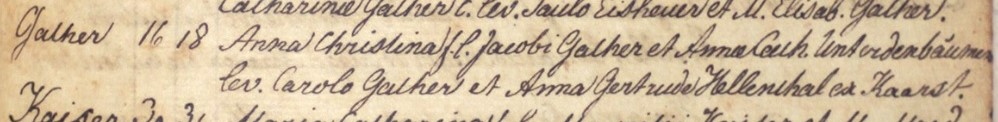 Catharinæ Gather l. lev. Paulo Eisheuer et M. Elisab. Gather.
Gather 16 18 Anna Christina f. l. Jacobi Gather et Annæ Cath. Unterdenbäumen
lev. Carolo Gather et Anna Gertrude Hellenthal ex Kaarst.
Kaiser Maria Catharina